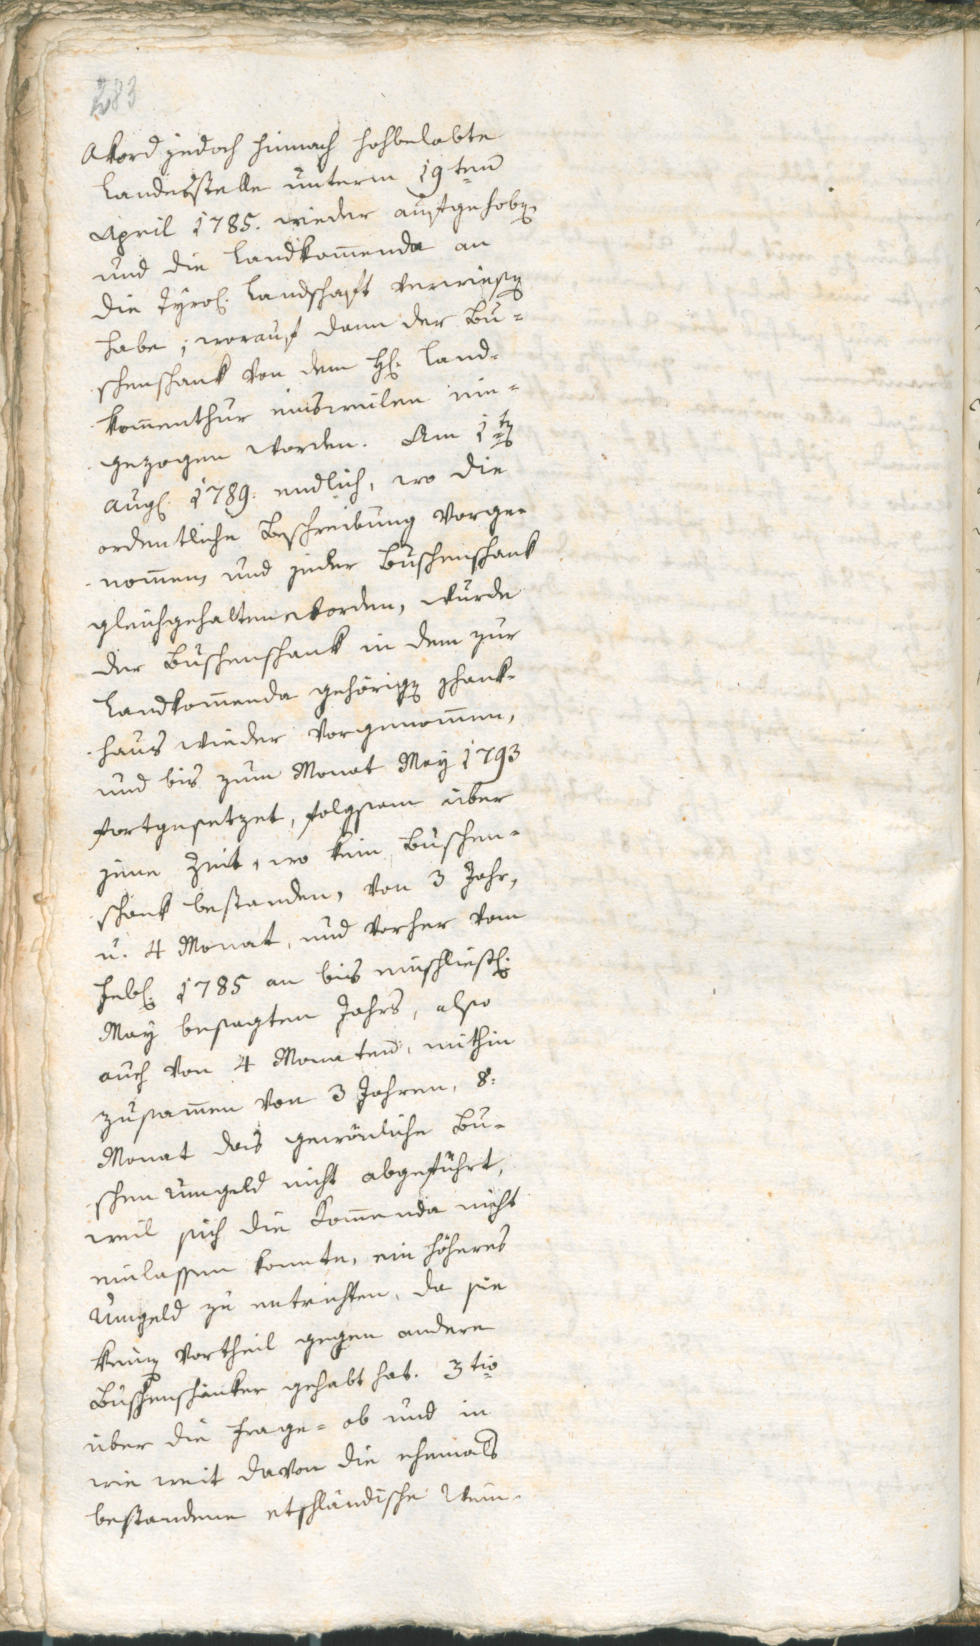 283
Akord jedoch hienach hochbelobte
Landesstelle unterm 19ten
April 1785. wieder aufgehoben
und die Landkom̄enda an
die Tyrol. Landschaft verwiesen
habe; worauf dann der Bu-
schenschank von dem H. Land-
kom̄enthur einsweilen ein-
gezogen worden. Am 1ten
Aug. 1789. endlich, wo die
ordentliche Beschreibung vorge-
nom̄en, und jeder Buschenschank
gleichgehalten worden, wurde
der Buschenschank in dem zur
Landkom̄enda gehörigen Schank-
haus wieder vorgenom̄en,
und bis zum Monat May 1793
fortgesetzet, folgsam über
jene Zeit, wo kein Buschen-
schank bestanden, von 3 Jahr,
u. 4 Monat, und vorher vom
Feb. 1785 an bis einschließl.
May besagten Jahrs, also
auch von 4 Monaten, mithin
zusam̄en von 3 Jahren, 8.
Monat das gewönliche Bu-
schen Umgeld nicht abgeführt,
weil sich die Kom̄enda nicht
einlassen konnte, ein höheres
Umgeld zu entrichten, da sie
keinen Vortheil gegen andere
Buschenschänker gehabt hat. 3tio
über die Frage - ob und in
wie weit davon die ehemals
bestandene etschländische Wein-